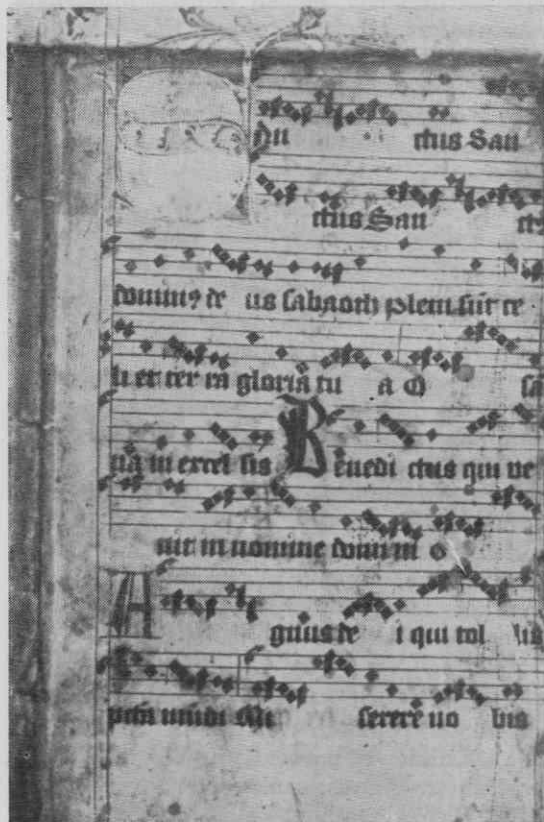 San ctus San
ctus San ctus
dominꝰ de us sabaoth pleni sūt ce
li et ter ra gloria tu a O sa
na in excel sis Benedi ctus qui ve
nit in nomine domini o
Agnus de i qui tol lis
pctā mūdi Mi serere no bis